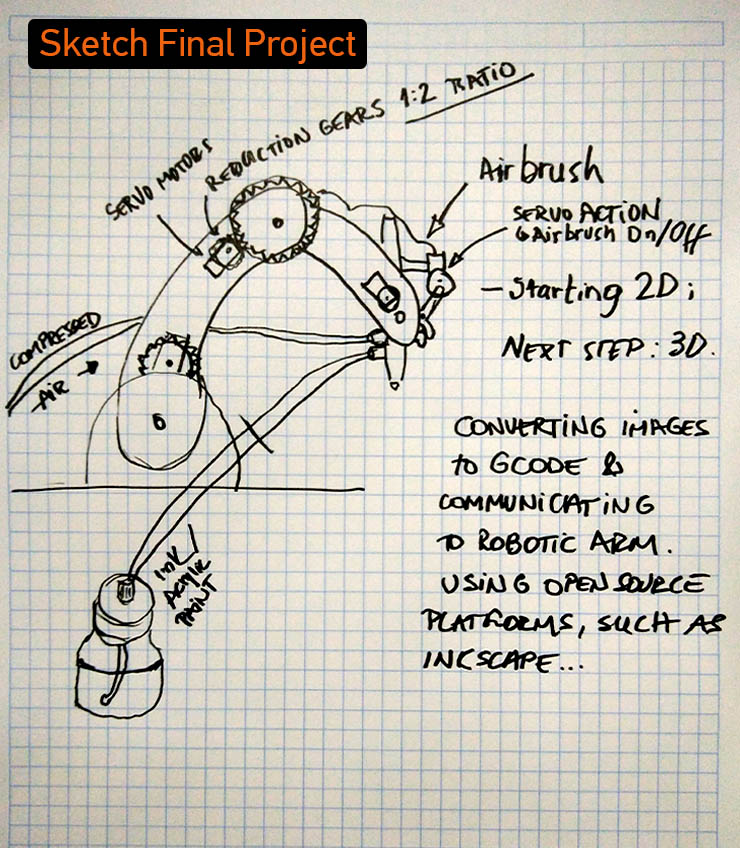 Sketch Final Project
SERVO MOTORS
REDUCTION GEARS 1:2 RATIO
Airbrush
SERVO ACTION
↳ Airbrush On/Off
- Starting 2D;
NEXT STEP: 3D.
COMPRESSED
AIR →
CONVERTING IMAGES
to GCODE &
COMMUNICATING
TO ROBOTIC ARM.
USING OPEN SOURCE
PLATFORMS, SUCH AS
INKSCAPE...
INK/
ACRYLIC
PAINT